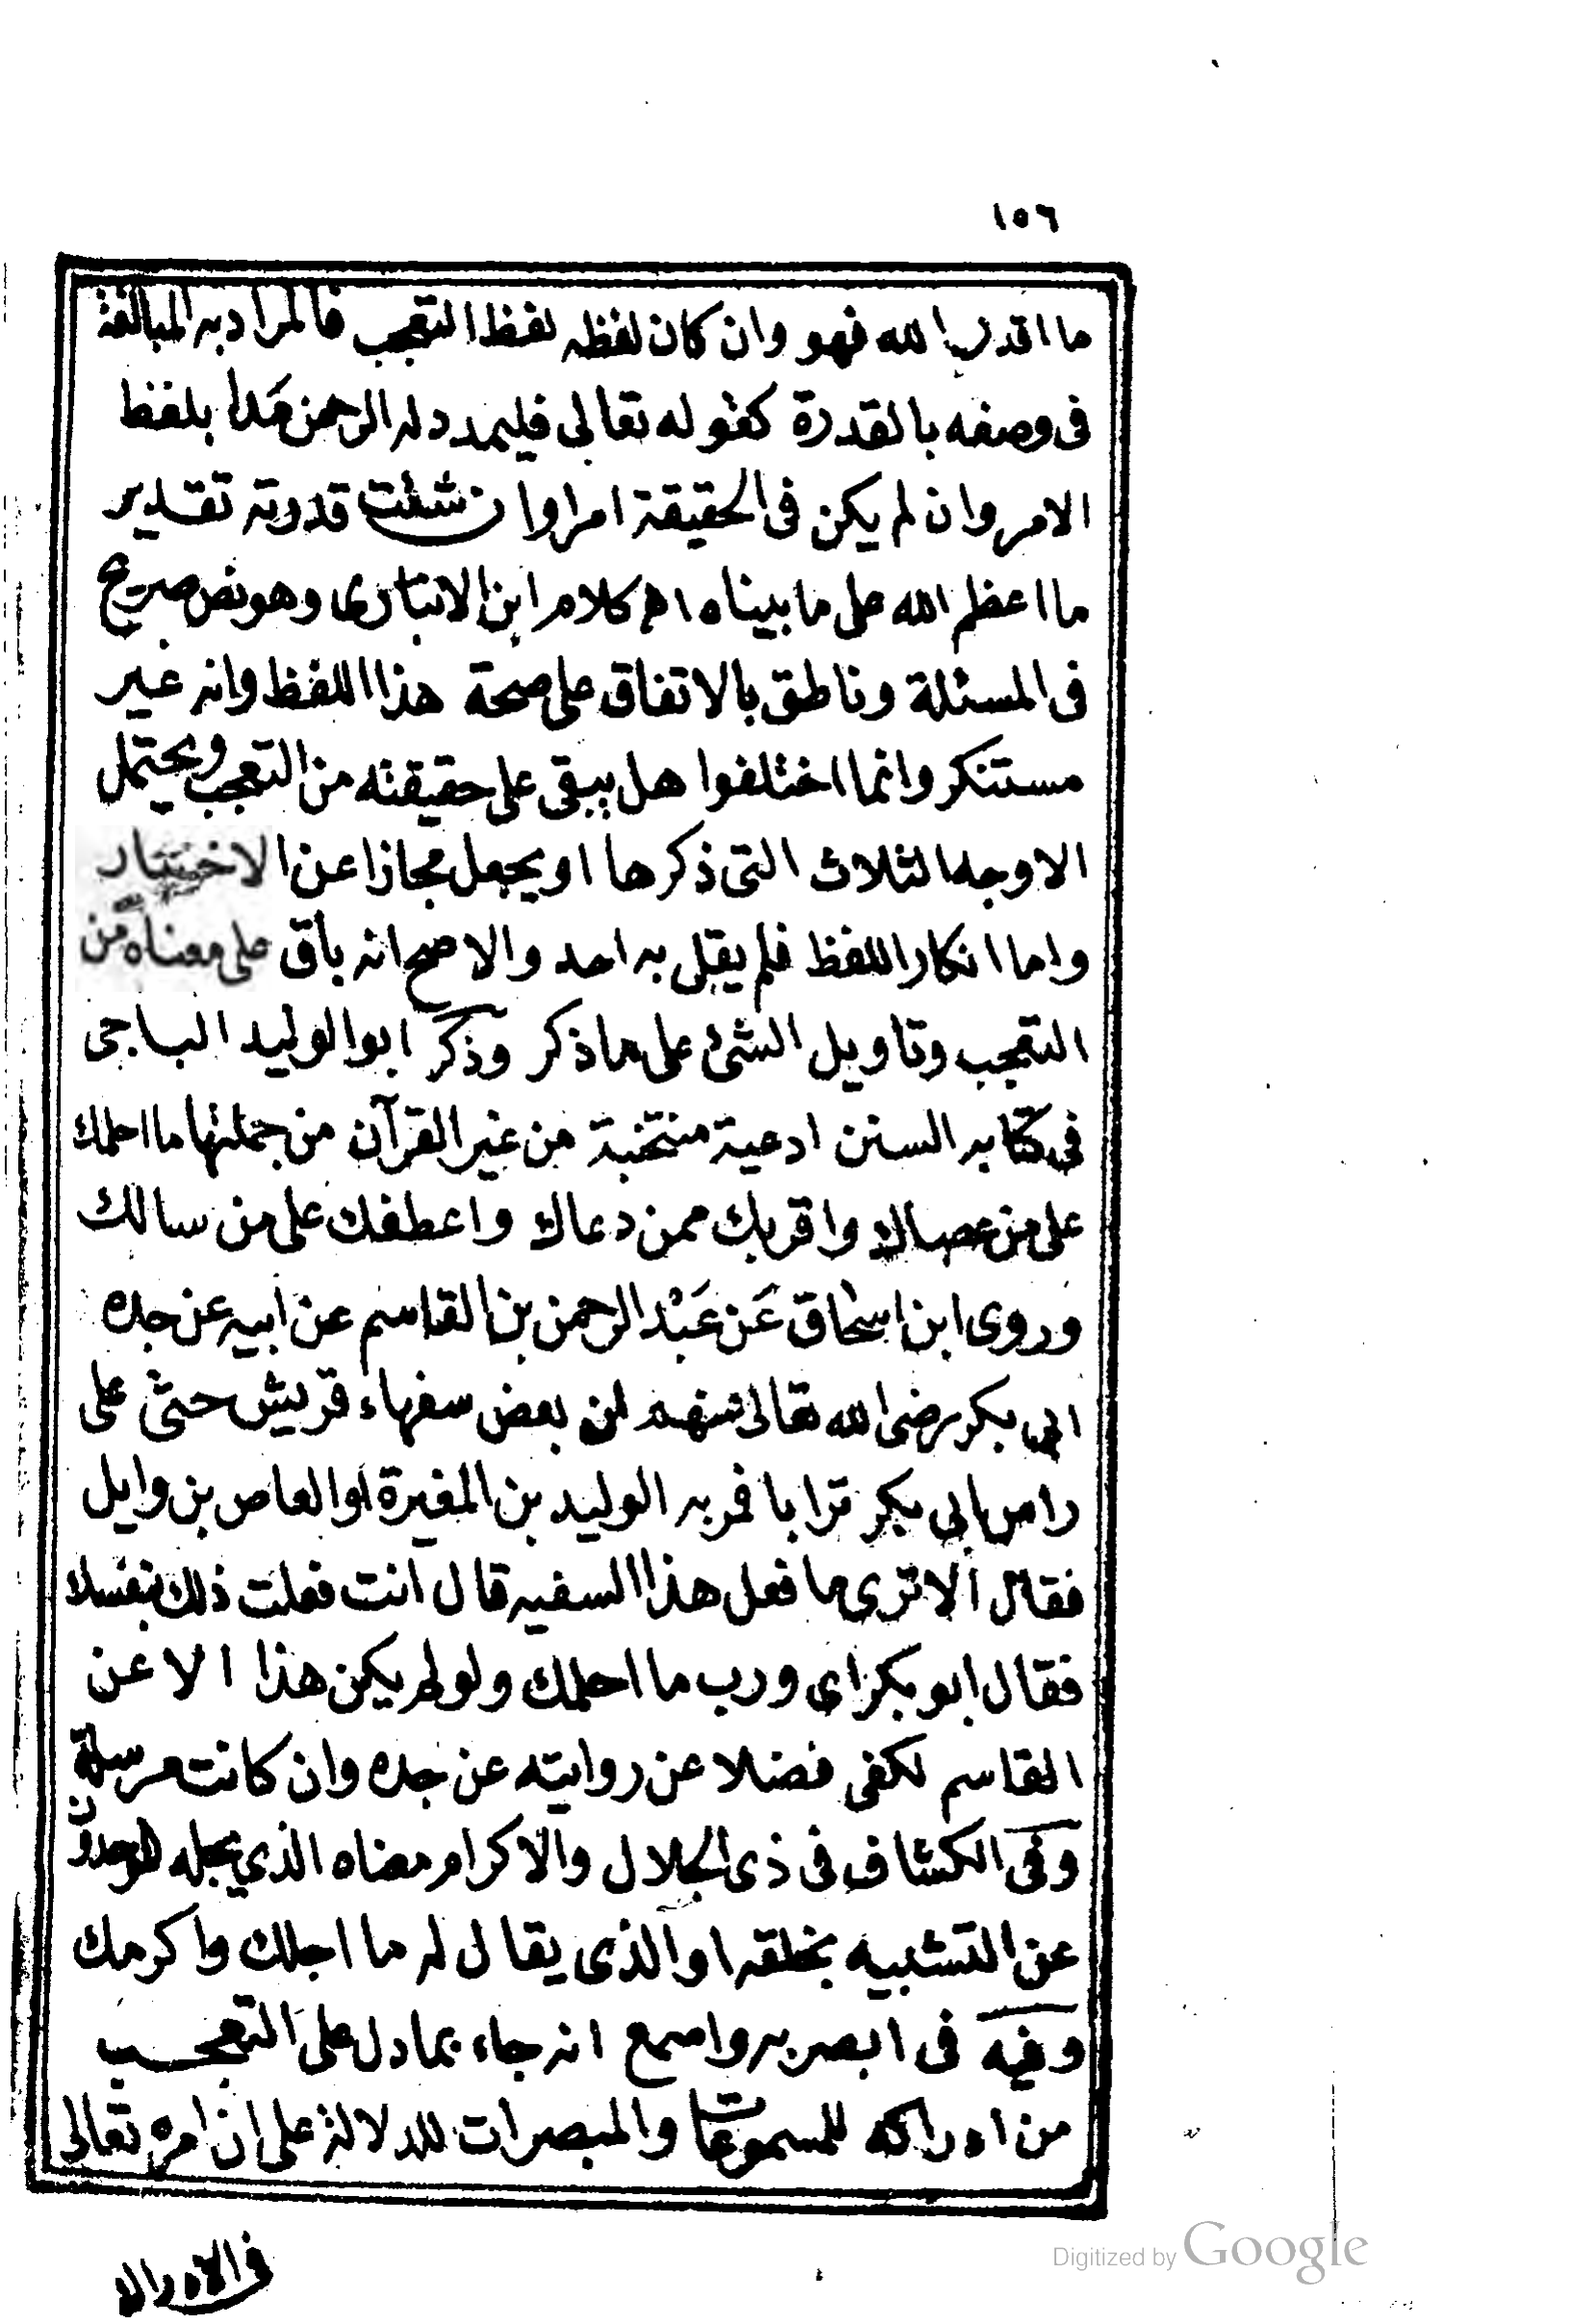 ١٥٦
ما اقدر الله فهو وان كان لفظه لفظ التعجب فالمراد به المبالغة
فى وصفه بالقدرة كقوله تعالى فليمدد له الرحمن مدا بلفظ
الامر وان لم يكن فى الحقيقة امرا وان شئت قدرته تقدير
ما اعظم الله على ما بيناه اهـ كلام ابن الانبارى وهو نص صريح
فى المسئلة وناطق بالاتفاق على صحة هذا اللفظ وانه غير
مستنكر وانما اختلفوا هل يبقى على حقيقته من التعجب ويحتمل
الاوجه الثلاث التى ذكرها او يجعل مجازا عن الاختيار
واما انكار اللفظ فلم يقل به احد والاصح انه باق على معناه من
التعجب وتاويل الشئ على ما ذكر وذكر ابو الوليد الباجى
فى كتابه السنن ادعية منتخبة من غير القرآن من جملتها ما احلمك
على من عصاك واقربك ممن دعاك واعطفك على من سالك
وروى ابن اسحاق عَن عَبْد الرحمن بن القاسم عن ابيه عن جده
ابى بكر رضى الله تعالى عنهم ان بعض سفهاء قريش حثى على
راس ابى بكر ترابا فمر به الوليد بن المغيرة او العاص بن وايل
فقال الا ترى ما فعل هذا السفيه قال انت فعلت ذلك بنفسك
فقال ابو بكر اى ورب ما احلمك ولو لم يكن هذا الا عن
القاسم لكفى فضلا عن روايته عن جده وان كانت مرسلة
وفى الكشاف فى ذى الجلال والاكرام معناه الذي يجله الموحدون
عن التشبيه بخلقه او الذى يقال له ما اجلك واكرمك
وفيه فى ابصر به واسمع انه جاء بما دل على التعجب
من ادراكه للمسموعات والمبصرات للدلالة على ان امره تعالى
فى الادراك
Digitized by Google